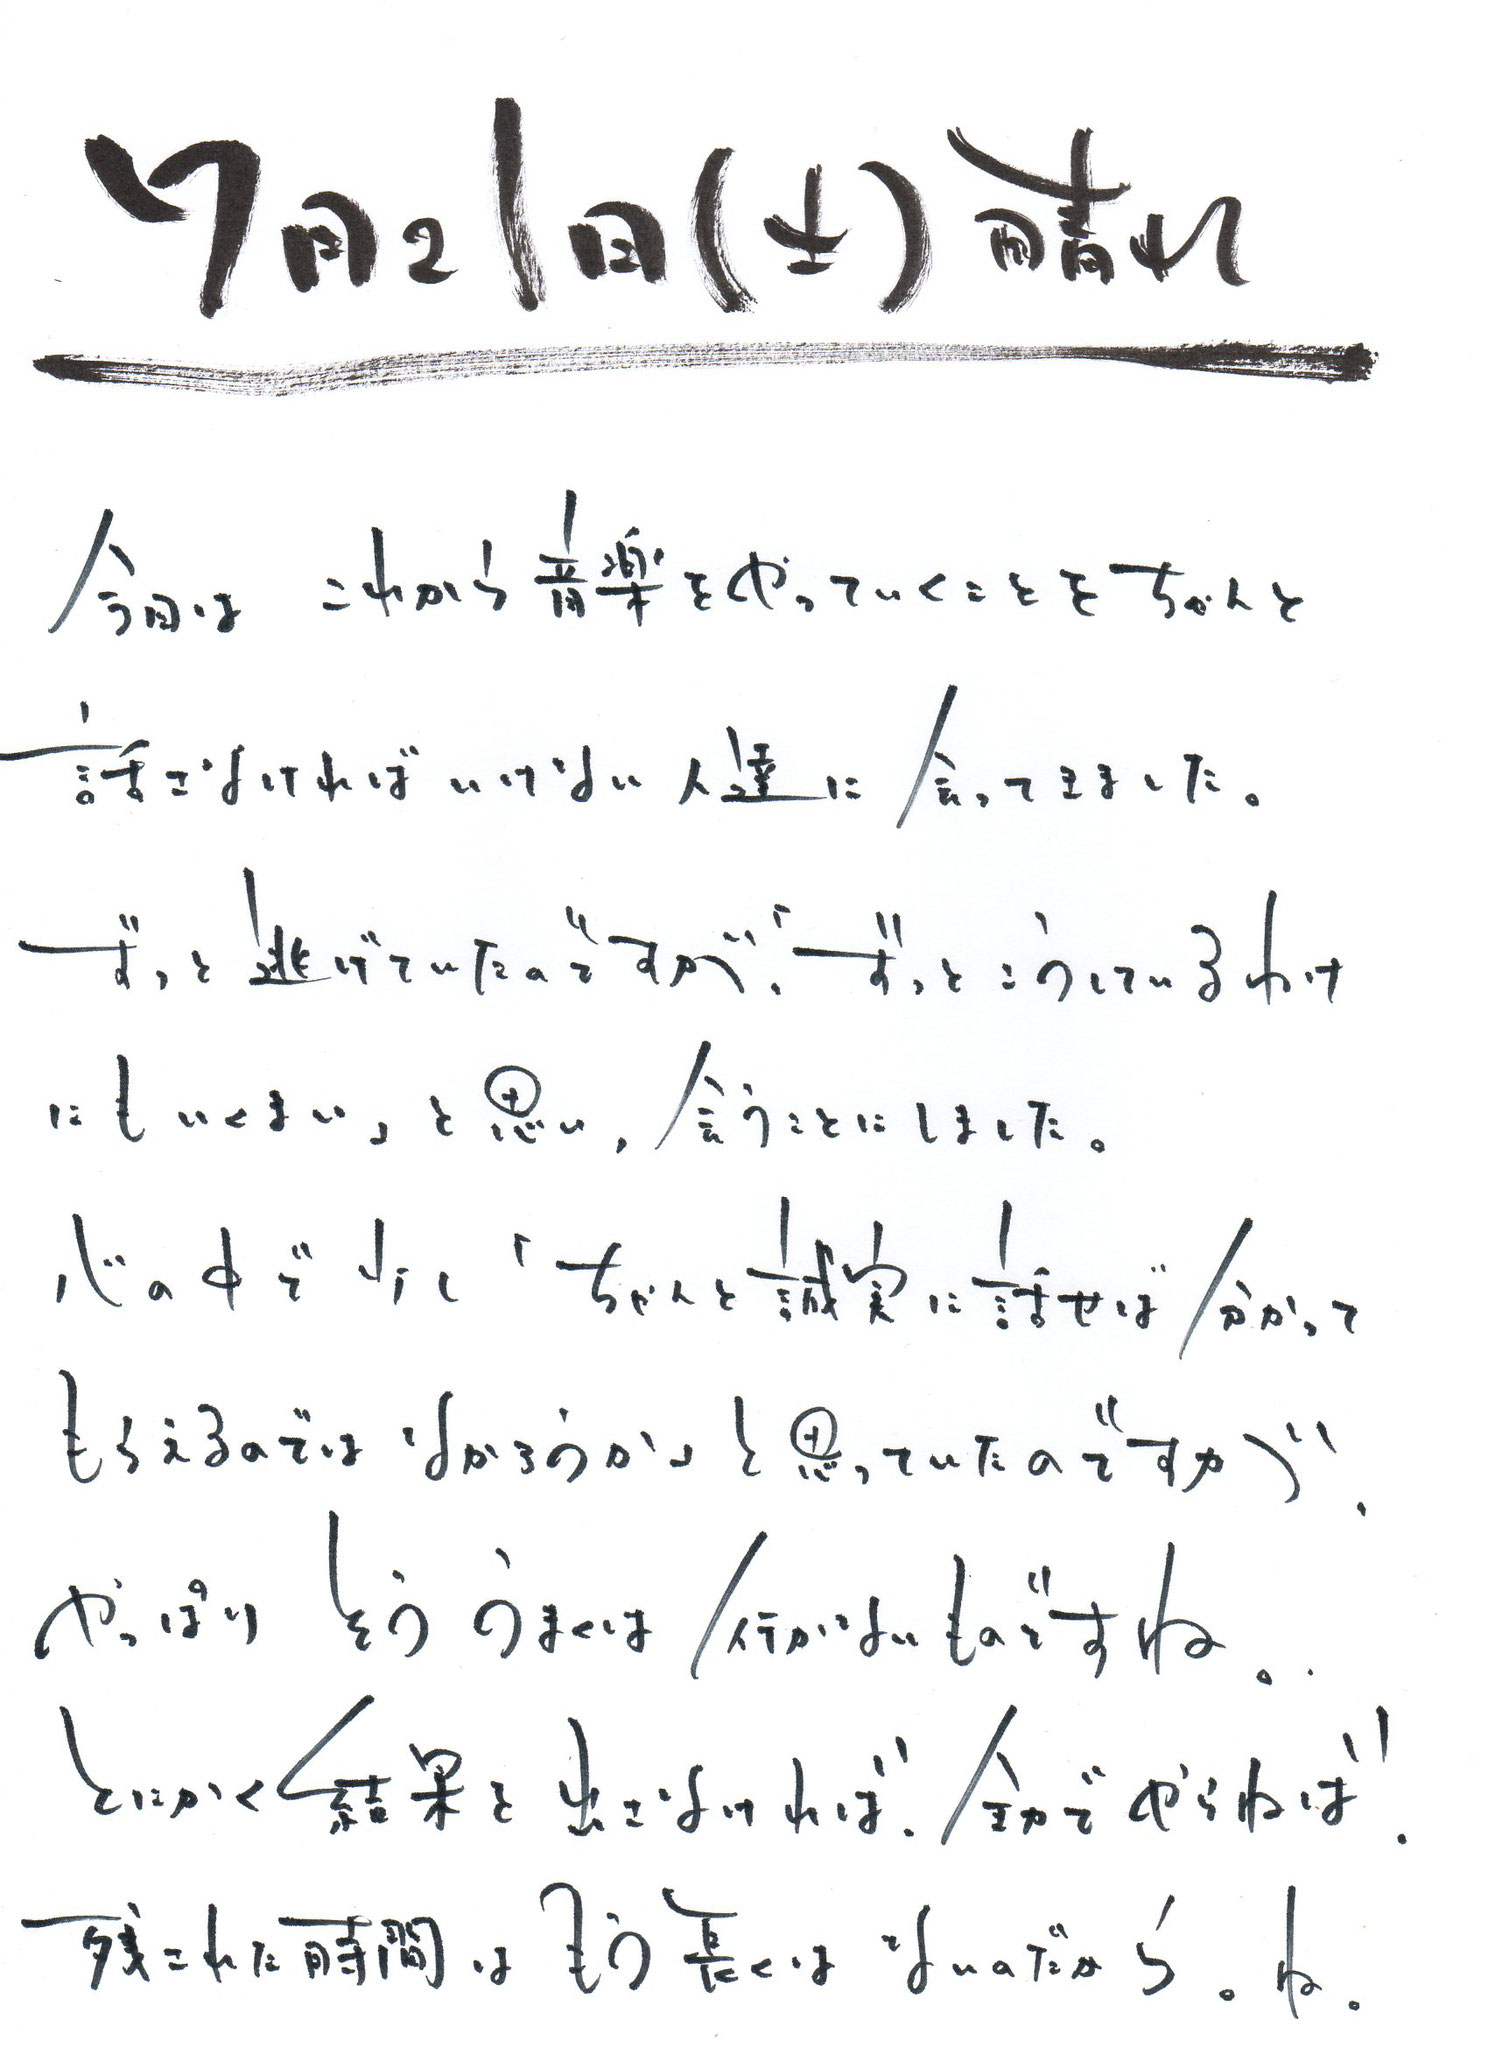 7月21日(土)晴れ
今日は これから音楽をやっていくことをちゃんと
話さなければいけない人達に会ってきました。
ずっと逃げていたのですが、「ずっとこうしているわけ
にもいくまい」と思い、会うことにしました。
心の中で少し「ちゃんと誠実に話せば分かって
もらえるのではなかろうか」と思っていたのですが、
やっぱり そううまくは行かないものですね。.
とにかく結果を出さなければ、全力でやらねば。
残された時間はもう長くはないのだから。ね。